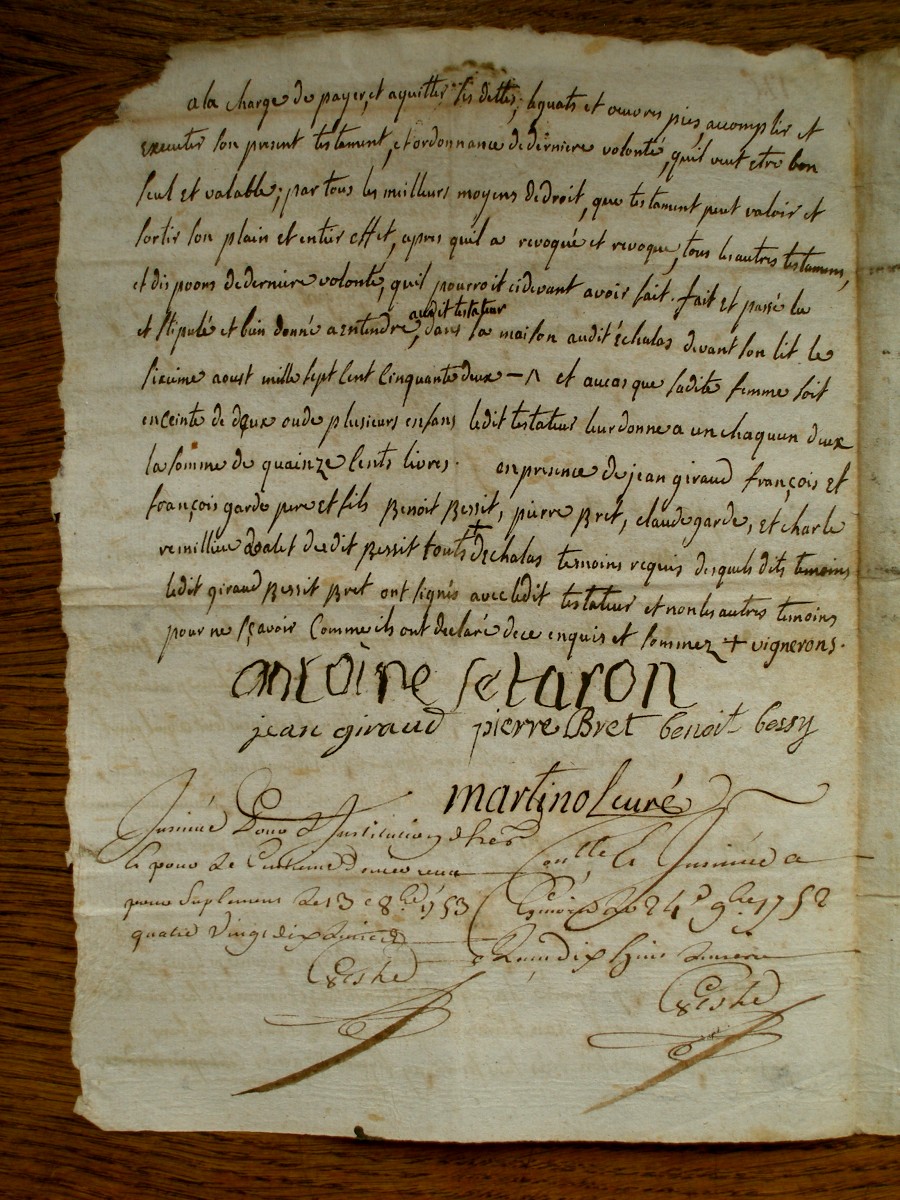 a la charge de payer, et aquitter ses dettes, leguats et oeuvres pies, accomplir et
executer son present testament, et ordonnance de derniere volonté, qu'il veut etre bon
seul et valable; par tous les meilleurs moyens de droit, que testament peut valoir et
sortir son plain et entier effet, apres qu'il a revoqué et revoque, tous les autres testamens,
et dispoons de derniere volonté, qu'il pourroit cidevant avoir fait. fait et passé lu
audit testateur
et stipulé et bien donné a entendre, dans sa maison audit Echalas devant son lit le
sixieme aoust mille sept cent cinquante deux — et aucas que sadite femme soit
enceinte de deux ou de plusieurs enfans ledit testateur leur donne a un chaquun deux
la somme de quainze cents livres. en presence de jean giraud françois et
françois garde pere et fils Benoit Bessit, pierre Bret, claude garde, et charle
remilliue valet dudit Bessit touts + d'Echalas temoins requis desquels dits temoins
ledit giraud Bessit Bret ont signés avec ledit testateur et non les autres temoins
pour ne sçavoir comme ils ont declaré de ce enquis et sommez + vignerons.
antoine setaron
jean giraud pierre Bret benoit bessy
martinol curé
Insinué
pour suplement le 13 e 8bre 1753
quatre vingt dix
Controllé et Insinué a
Givors le 24 e 9bre 1752